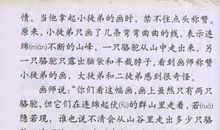 情。当他拿起小徒弟的画时，禁不住点头称赞。
原来，小徒弟只画了几条弯弯曲曲的线，表示连
绵(mián)不断的山峰，一只骆驼从山中走出来，另
一只骆驼只露出脑袋和半截脖子。看到画师称赞
小徒弟的画，大徒弟和二徒弟感到很奇怪。
画师说：“你们看这幅画，画上虽然只有两只
骆驼，但它们在连绵起伏(fú)的群山里走着，若(ruò)
隐若现，谁也说不清会从山谷里走出多少只骆